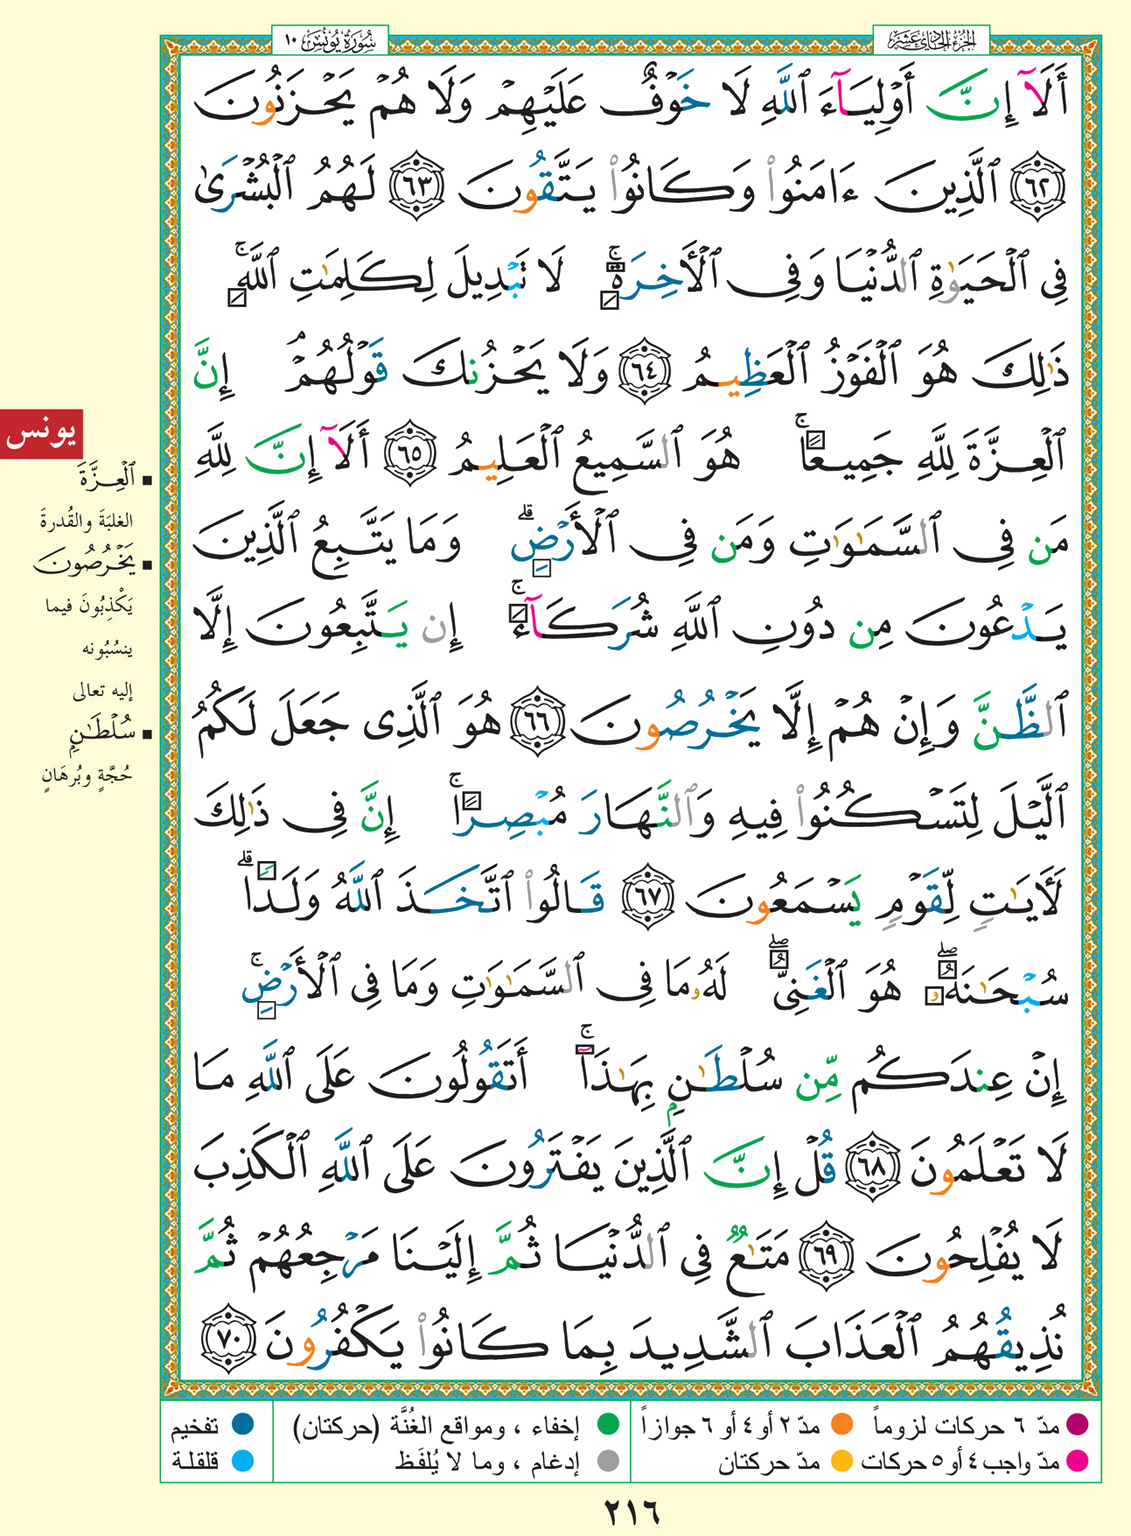 الجزء الحادي عشر
سُورَةُ يُونُسَ ١٠
أَلَآ إِنَّ أَوْلِيَآءَ ٱللَّهِ لَا خَوْفٌ عَلَيْهِمْ وَلَا هُمْ يَحْزَنُونَ
٦٢ ٱلَّذِينَ ءَامَنُوا۟ وَكَانُوا۟ يَتَّقُونَ ٦٣ لَهُمُ ٱلْبُشْرَىٰ
فِى ٱلْحَيَوٰةِ ٱلدُّنْيَا وَفِى ٱلْأَخِرَةِۚ لَا تَبْدِيلَ لِكَلِمَٰتِ ٱللَّهِۚ
ذَٰلِكَ هُوَ ٱلْفَوْزُ ٱلْعَظِيمُ ٦٤ وَلَا يَحْزُنكَ قَوْلُهُمْۘ إِنَّ
ٱلْعِزَّةَ لِلَّهِ جَمِيعًاۚ هُوَ ٱلسَّمِيعُ ٱلْعَلِيمُ ٦٥ أَلَآ إِنَّ لِلَّهِ
مَن فِى ٱلسَّمَٰوَٰتِ وَمَن فِى ٱلْأَرْضِۗ وَمَا يَتَّبِعُ ٱلَّذِينَ
يَدْعُونَ مِن دُونِ ٱللَّهِ شُرَكَآءَۚ إِن يَتَّبِعُونَ إِلَّا
ٱلظَّنَّ وَإِنْ هُمْ إِلَّا يَخْرُصُونَ ٦٦ هُوَ ٱلَّذِى جَعَلَ لَكُمُ
ٱلَّيْلَ لِتَسْكُنُوا۟ فِيهِ وَٱلنَّهَارَ مُبْصِرًاۚ إِنَّ فِى ذَٰلِكَ
لَأَيَٰتٍ لِّقَوْمٍ يَسْمَعُونَ ٦٧ قَالُوا۟ ٱتَّخَذَ ٱللَّهُ وَلَدًاۗ
سُبْحَٰنَهُۥۖ هُوَ ٱلْغَنِىُّۖ لَهُۥ مَا فِى ٱلسَّمَٰوَٰتِ وَمَا فِى ٱلْأَرْضِۚ
إِنْ عِندَكُم مِّن سُلْطَٰنٍۭ بِهَٰذَآۚ أَتَقُولُونَ عَلَى ٱللَّهِ مَا
لَا تَعْلَمُونَ ٦٨ قُلْ إِنَّ ٱلَّذِينَ يَفْتَرُونَ عَلَى ٱللَّهِ ٱلْكَذِبَ
لَا يُفْلِحُونَ ٦٩ مَتَٰعٌ فِى ٱلدُّنْيَا ثُمَّ إِلَيْنَا مَرْجِعُهُمْ ثُمَّ
نُذِيقُهُمُ ٱلْعَذَابَ ٱلشَّدِيدَ بِمَا كَانُوا۟ يَكْفُرُونَ ٧٠
يونس
▪ ٱلْعِزَّةَ
الغلبَةَ والقُدرةَ
▪ يَخْرُصُونَ
يَكْذِبُونَ فيما
ينسُبُونه
إليه تعالى
▪ سُلْطَٰنٍ
حُجَّةٍ وبُرهَانٍ
مدّ ٦ حركات لزوماً
مدّ ٢ أو ٤ أو ٦ جوازاً
إخفاء ، ومواقع الغُنَّة (حركتان)
تفخيم
مدّ واجب ٤ أو ٥ حركات
مدّ حركتان
إدغام ، وما لا يُلفَظ
قلقلة
٢١٦